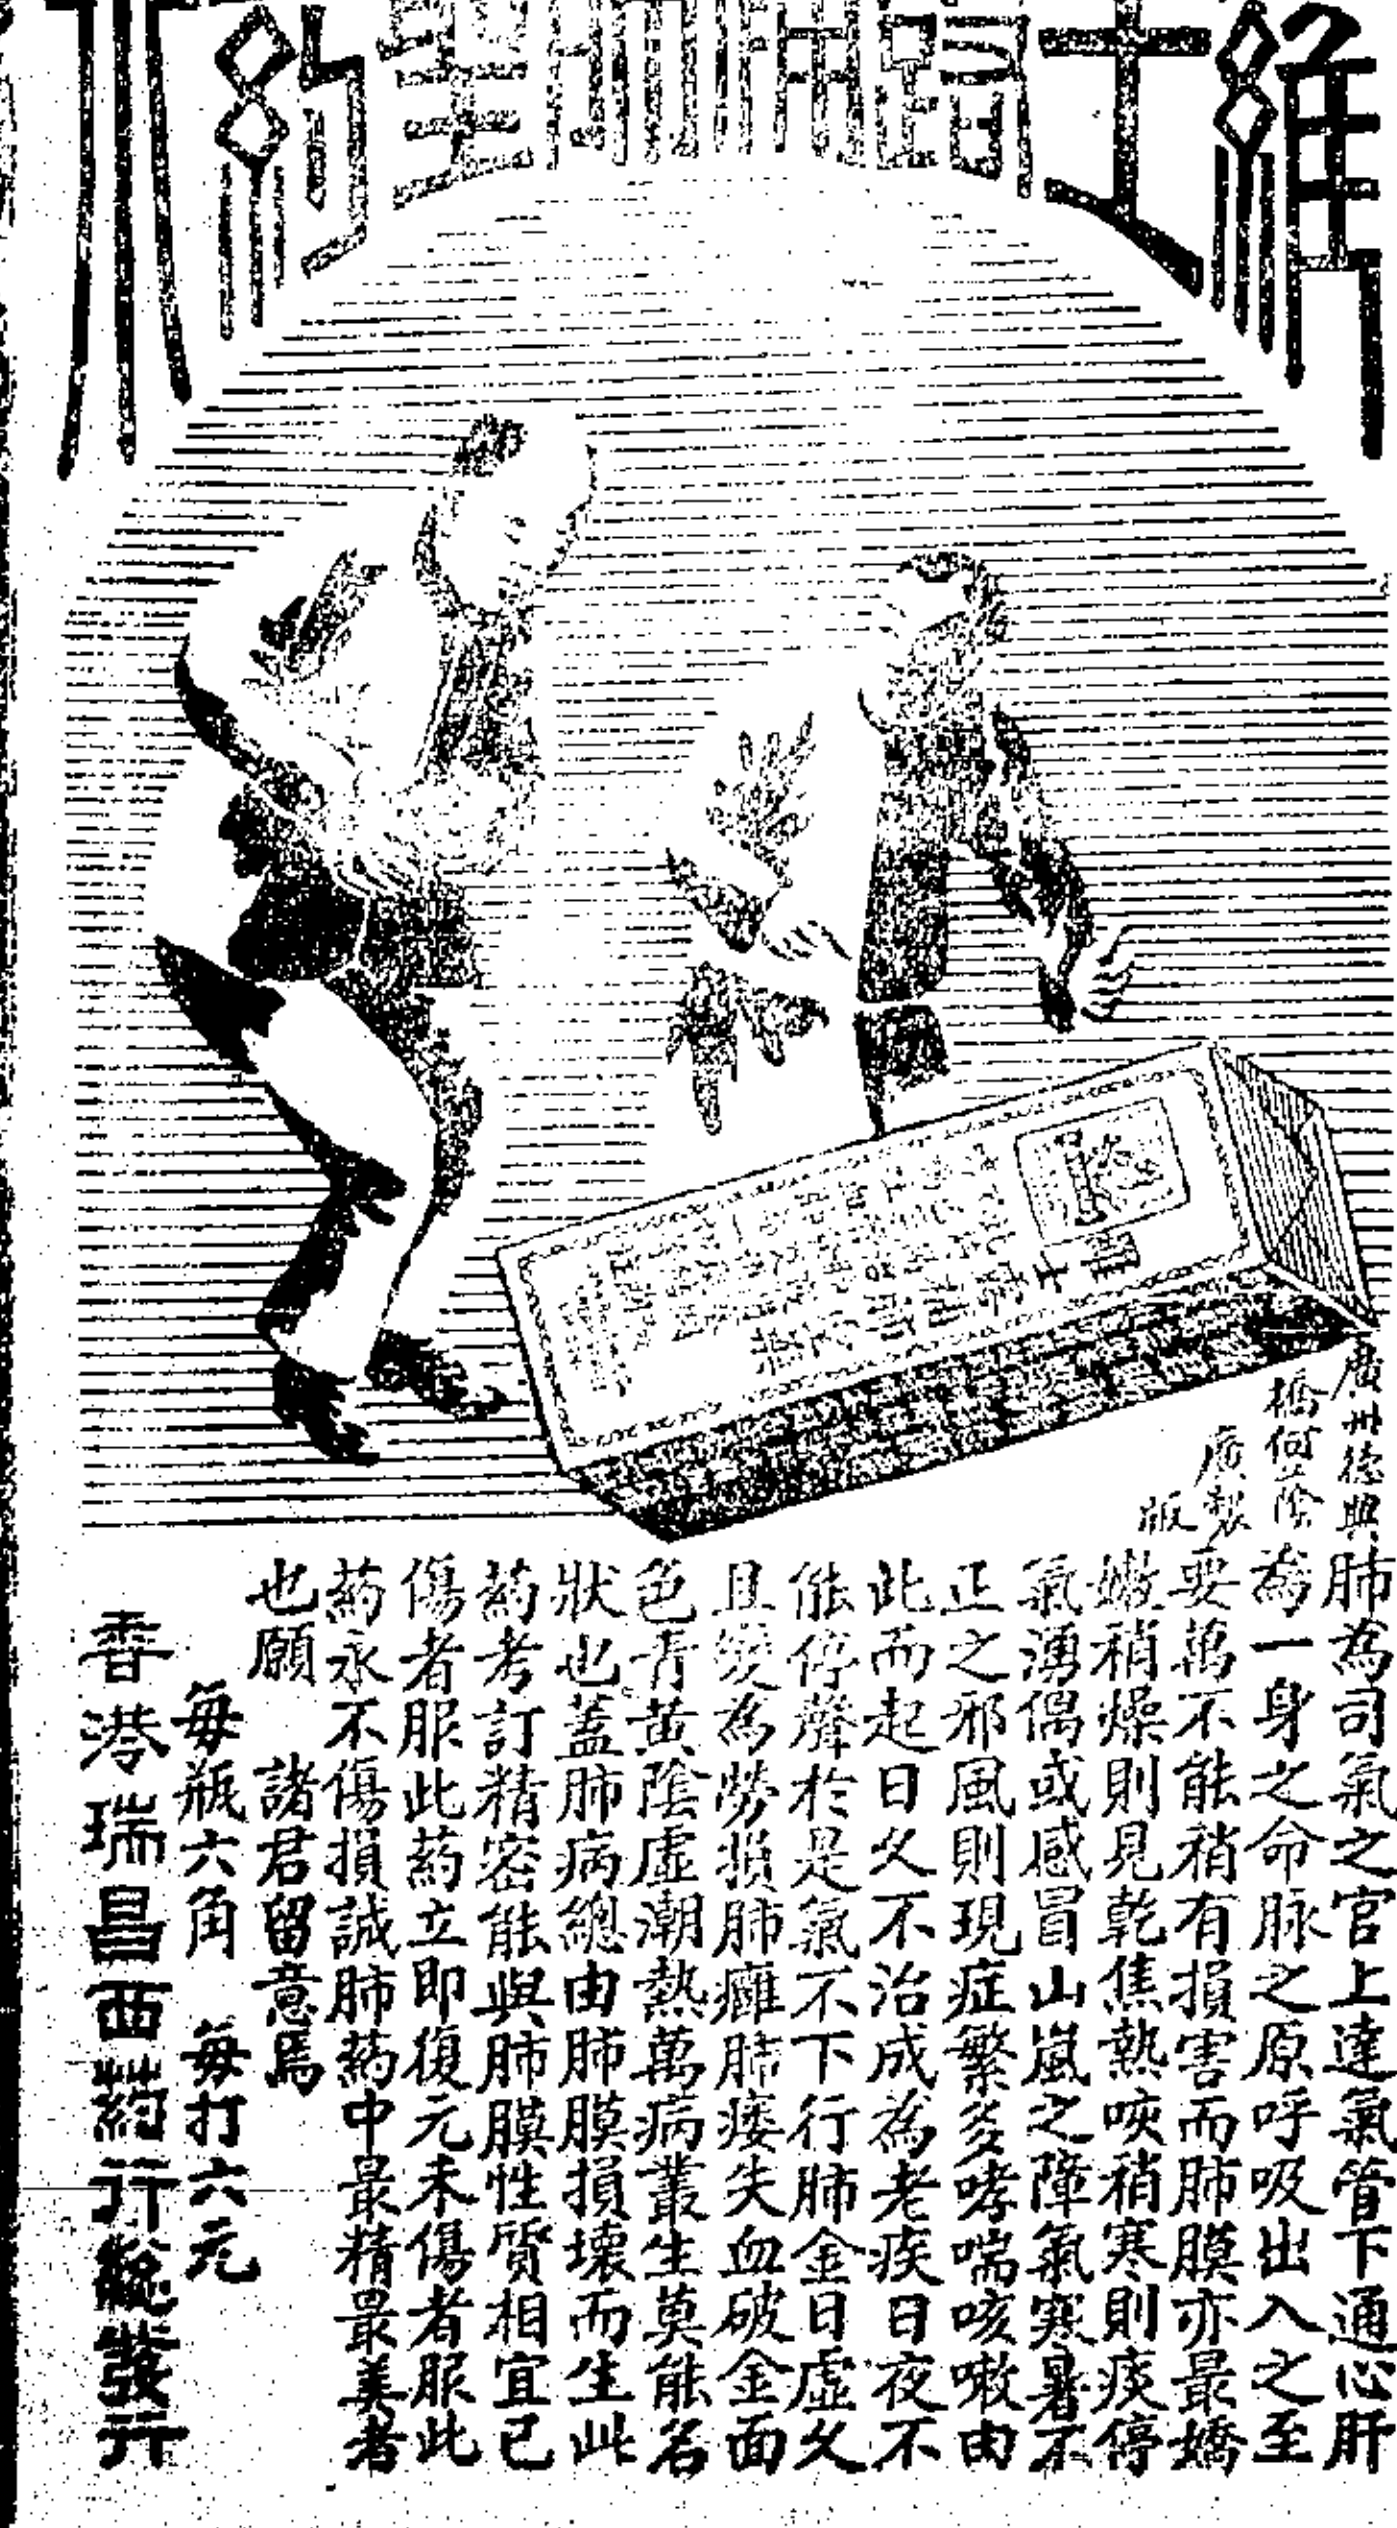 維士哥補肺聖葯水
廣州德興
橋何蔭
廣製
版
肺為司氣之官上達氣管下通心肝
為一身之命脉之原呼吸出入之至
要萬不能稍有損害而肺膜亦最嬌
嫩稍燥則見乾焦熱咳稍寒則痰停
氣湧偶或感冒山嵐之障氣寒暑不
正之邪風則現症繁多哮喘咳嗽由
此而起日久不治成為老疾日夜不
能停聲於是氣不下行肺金日虛久
且變為勞損肺癰肺痿失血破金面
色青黃陰虛潮熱萬病叢生莫能名
狀也蓋肺病總由肺膜損壞而生此
葯考訂精密能與肺膜性質相宜已
傷者服此葯立即復元未傷者服此
葯永不傷損誠肺葯中最精最美者
也願 諸君留意焉
每瓶六角 每打六元
香港瑞昌西葯行總發行